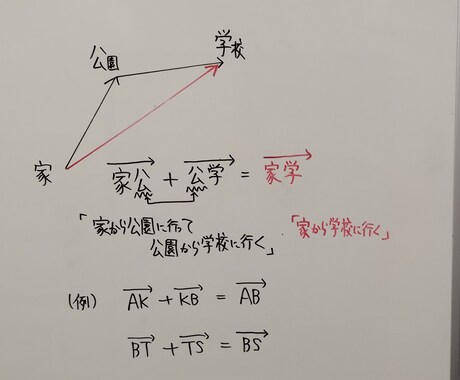 学校
公園
家
家公 + 公学 = 家学
「家から公園に行って
公園から学校に行く」
「家から学校に行く」
(例) AK + KB = AB
BT + TS = BS